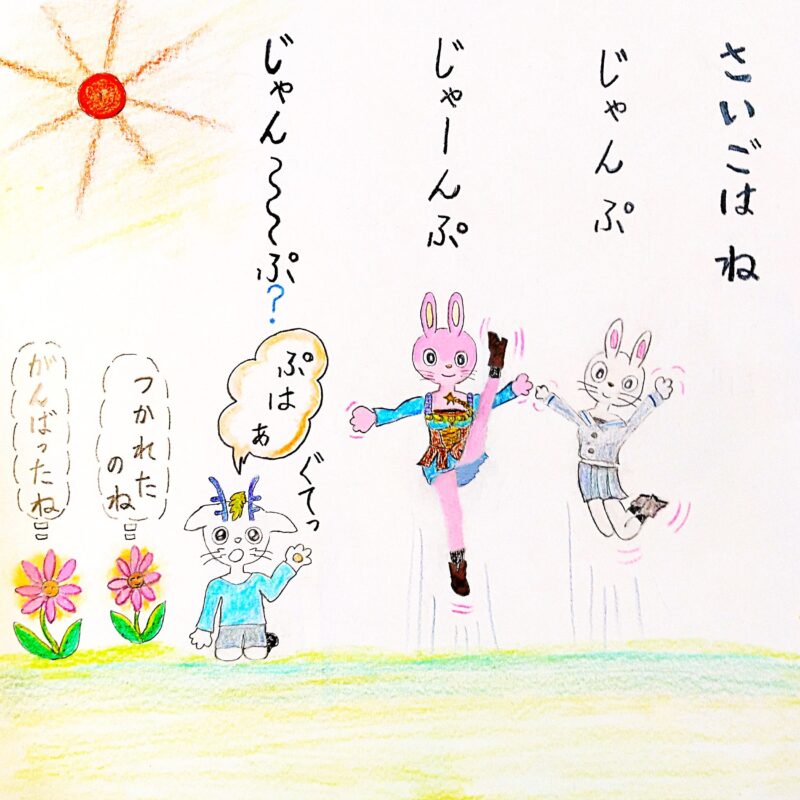 さいごは ね
じゃんぷ
じゃーんぷ
じゃん〜〜ぷ?
ぷはぁ
ぐてっ
つかれた
のね
がんばったね